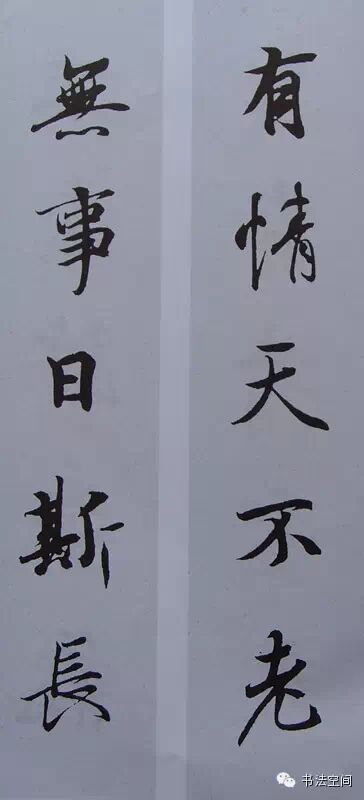 有情天不老
無事日斯長
书法空间